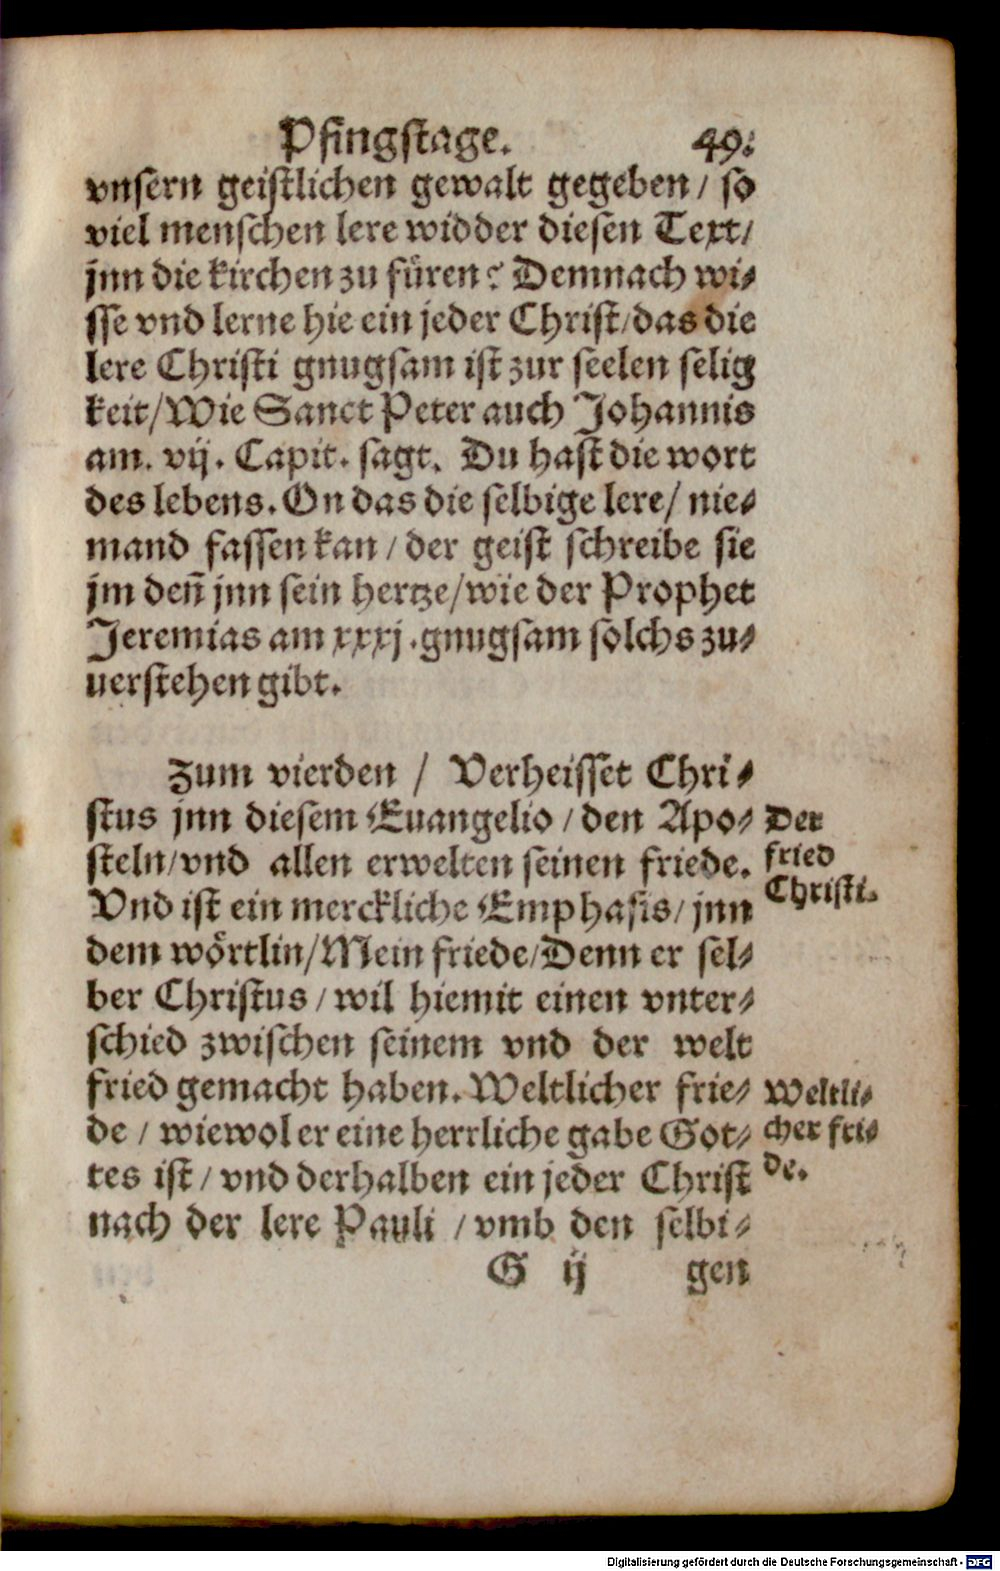 Pfingstage. 49.
vnsern geistlichen gewalt gegeben/ so
viel menschen lere widder diesen Text/
jnn die kirchen zu füren? Demnach wi⸗
sse vnd lerne hie ein jeder Christ/das die
lere Christi gnugsam ist zur seelen selig
keit/Wie Sanct Peter auch Johannis
am. vij. Capit. sagt. Du hast die wort
des lebens. On das die selbige lere/ nie⸗
mand fassen kan/ der geist schreibe sie
jm deñ jnn sein hertze/wie der Prophet
Jeremias am xxxj.gnugsam solchs zu⸗
uerstehen gibt.
Zum vierden / Verheisset Chri⸗
stus jnn diesem Euangelio/den Apo⸗
steln/vnd allen erwelten seinen friede.
Vnd ist ein merckliche Emphasis/ jnn
dem wörtlin/Mein friede/Denn er sel⸗
ber Christus/wil hiemit einen vnter⸗
schied zwischen seinem vnd der welt
fried gemacht haben. Weltlicher frie⸗
de/ wiewol er eine herrliche gabe Got⸗
tes ist/ vnd derhalben ein jeder Christ
nach der lere Pauli /vmb den selbi⸗
G ij gen
Der
fried
Christi.
Weltli⸗
cher fri⸗
de.
Digitalisierung gefördert durch die Deutsche Forschungsgemeinschaft - DFG